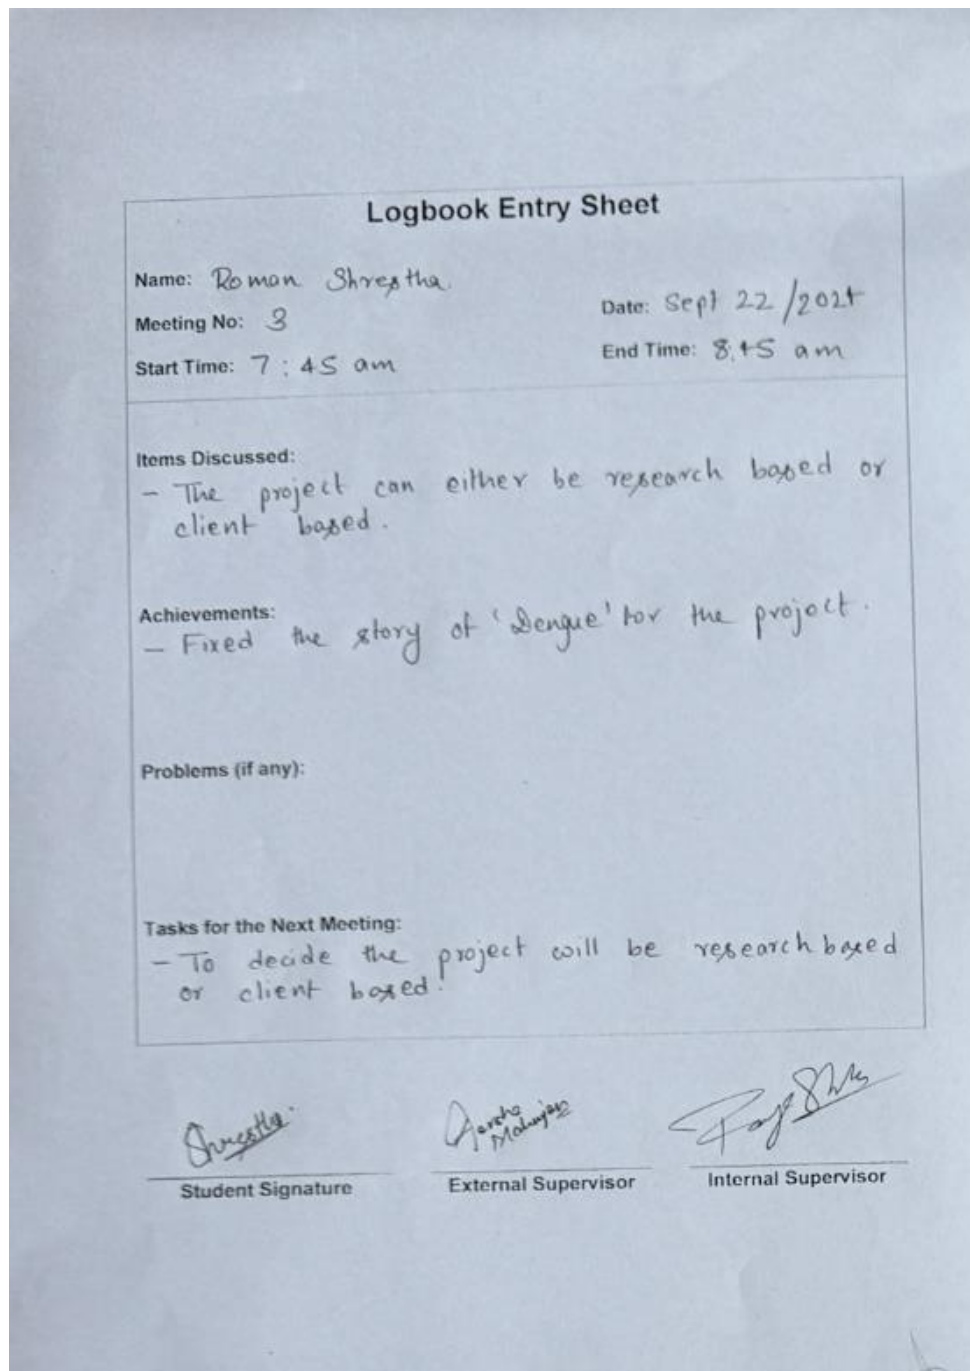 Logbook Entry Sheet
Name: Roman Shrestha
Date: Sept 22/2021
Meeting No: 3
Start Time: 7:45 am
End Time: 8:45 am
Items Discussed:
- The project can either be research based or
client based.
Achievements:
- Fixed the story of 'Dengue' for the project.
Problems (if any):
Tasks for the Next Meeting:
- To decide the project will be research based
or client based.
Shrestha
Maharjan
Student Signature
External Supervisor
Internal Supervisor